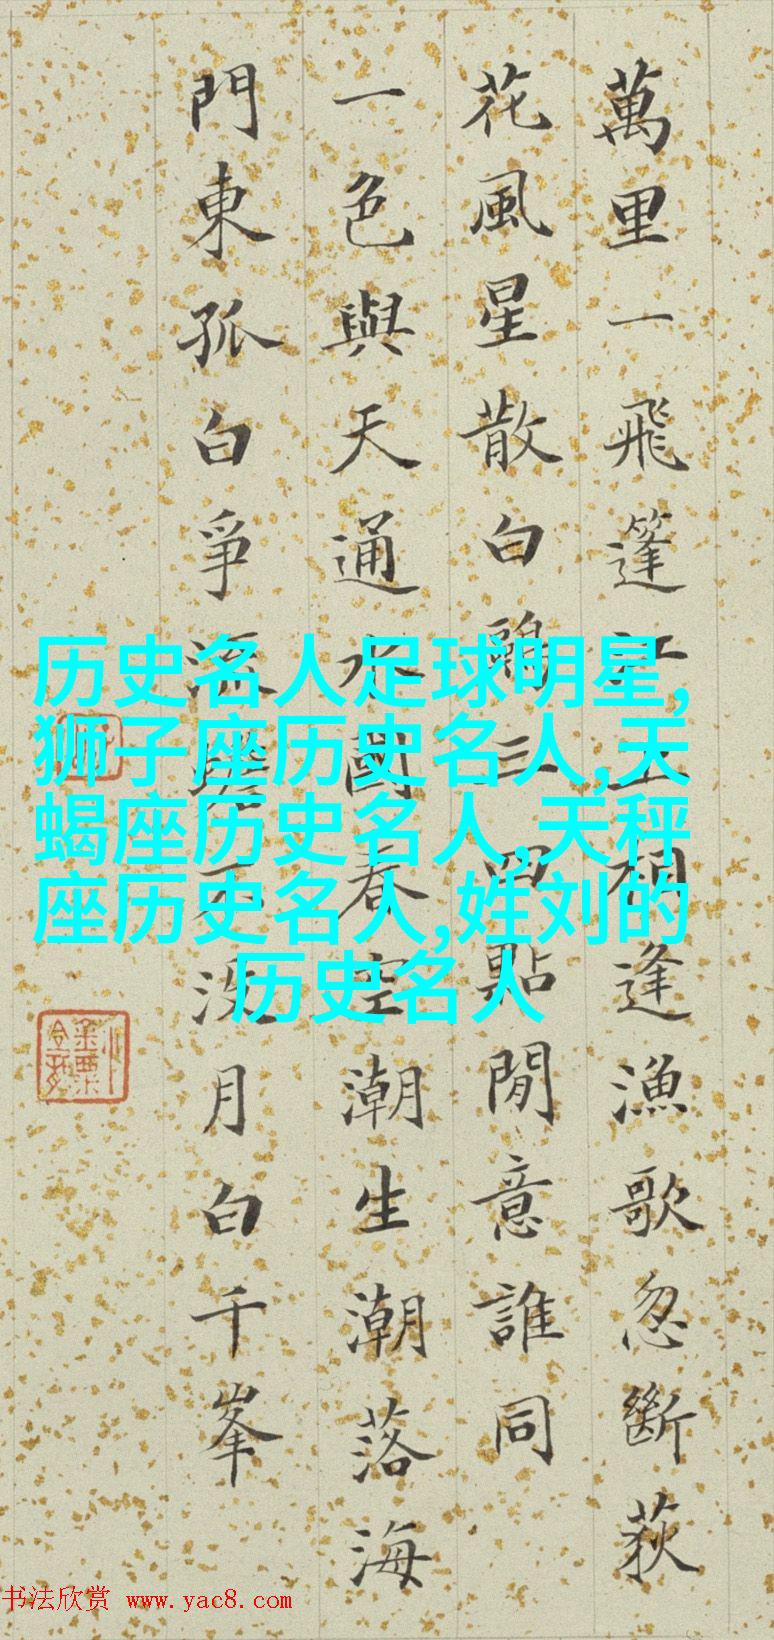 萬里一飛篷江上相逢漁歌忽斷荻
花風星散白鷗三四點閒意誰同
一色與天通水國春空潮生潮落海
門東孤白爭流
沒月白千峯
历史名人足球明星,
狮子座历史名人,天
蝎座历史名人,天秤
座历史名人,姓刘的
历史名人
书法欣赏 www.yac8.com